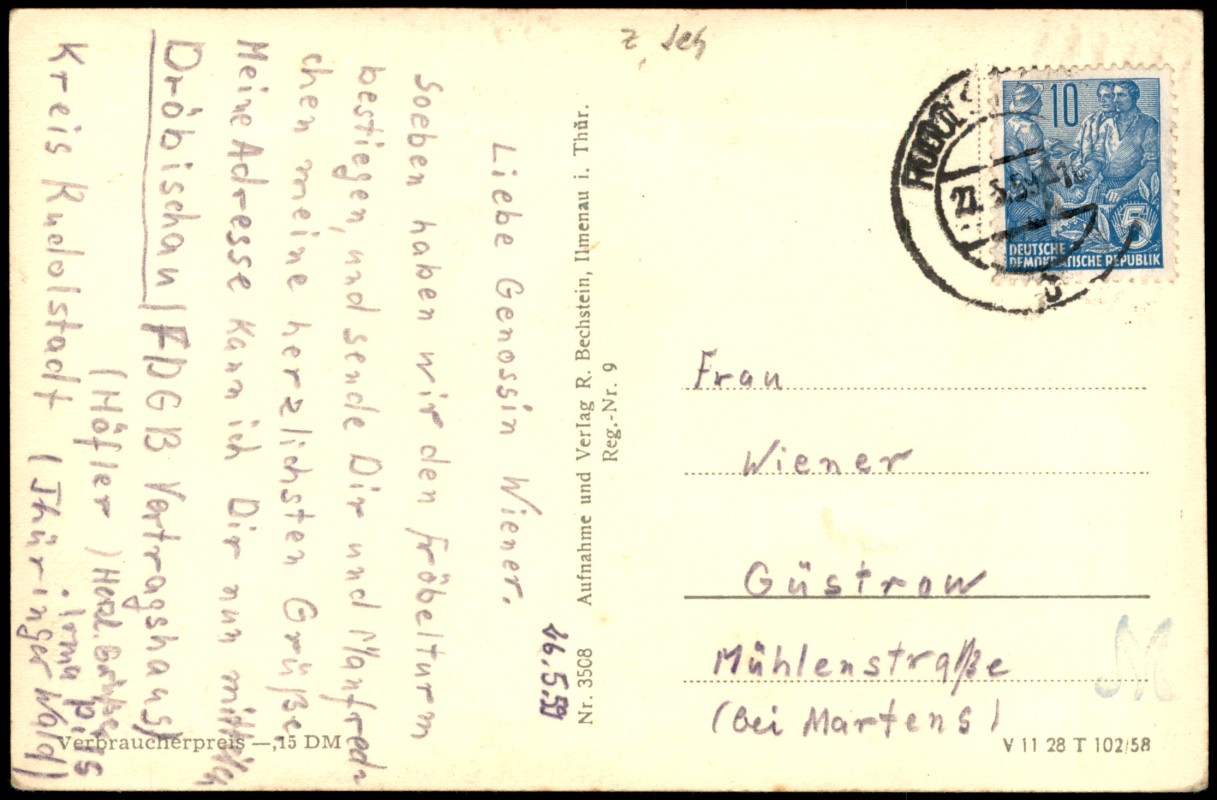 26.5.59
Liebe Genossin Wiener.
Soeben haben wir den Fröbelturm
bestiegen, und sende Dir und Manfred-
chen meine herzlichsten Grüße
Meine Adresse kann ich Dir nun mitteilen
Dröbischau (FDGB Vertragshaus)
(Höfler) Herzl. Grüße
Irma
Kreis Rudolstadt (Thüringer Wald)
Verbraucherpreis —,15 DM
Nr. 3508 Aufnahme und Verlag R. Bechstein, Ilmenau i. Thür.
Reg.-Nr. 9
10
5
DEUTSCHE
DEMOKRATISCHE REPUBLIK
Frau
Wiener
Güstrow
Mühlenstraße
(bei Martens)
M
V 11 28 T 102/58